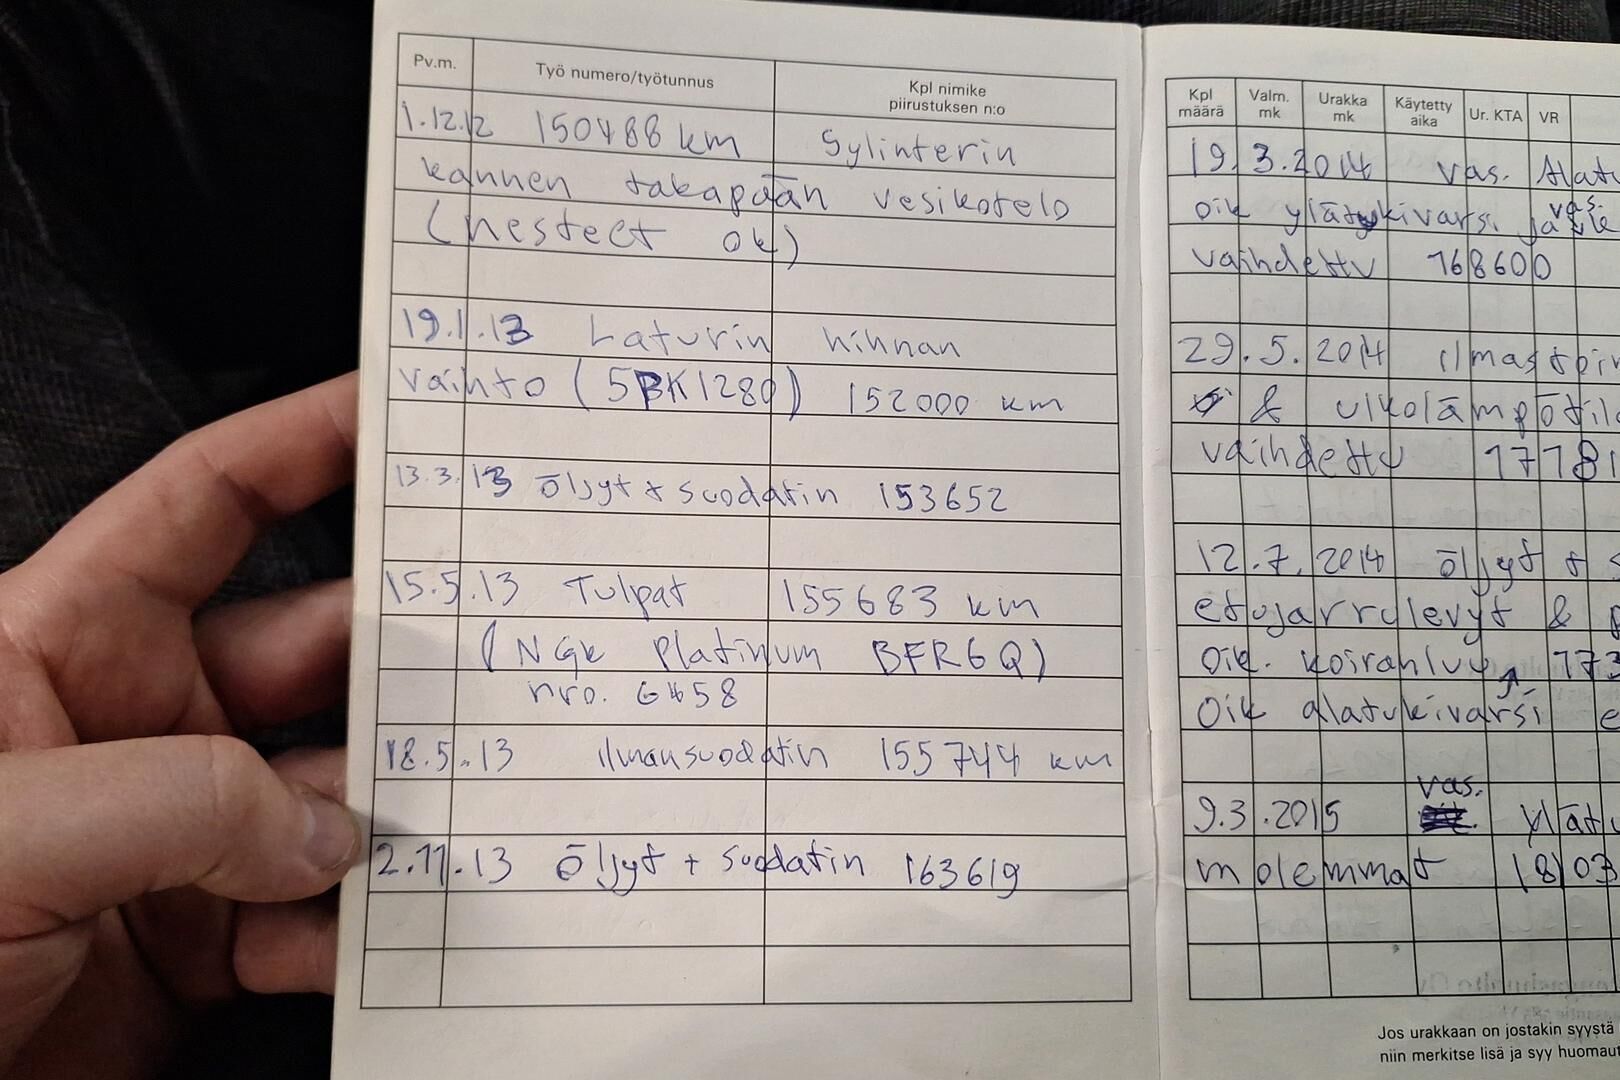 Pv.m. Työ numero/työtunnus Kpl nimike
piirustuksen n:o
1.12.12 150488 km Sylinterin
kannen takapään vesikotelo
(nesteet ok)
19.1.13 Laturin hihnan
vaihto (5PK1280) 152000 km
13.3.13 öljyt + suodatin 153652
15.5.13 Tulpat 155683 km
(NGK Platinum BFR6Q)
nro. 6458
18.5.13 ilmansuodatin 155744 km
2.11.13 öljyt + suodatin 163619
Kpl Valm. Urakka Käytetty Ur. KTA VR
määrä mk mk aika
19.3.2014 vas. Alatu
vas.
oik ylätukivarsi ja
vaihdettu 168600
29.5.2014 ilmastoin
& ulkolämpötila
vaihdettu
12.7.2014 öljyt +
etujarrulevyt &
oik. koiranluu,
oik alatukivarsi
vas.
9.3.2015 ylätu
molemmat
Jos urakkaan on jostakin syystä
niin merkitse lisä ja syy huomaut